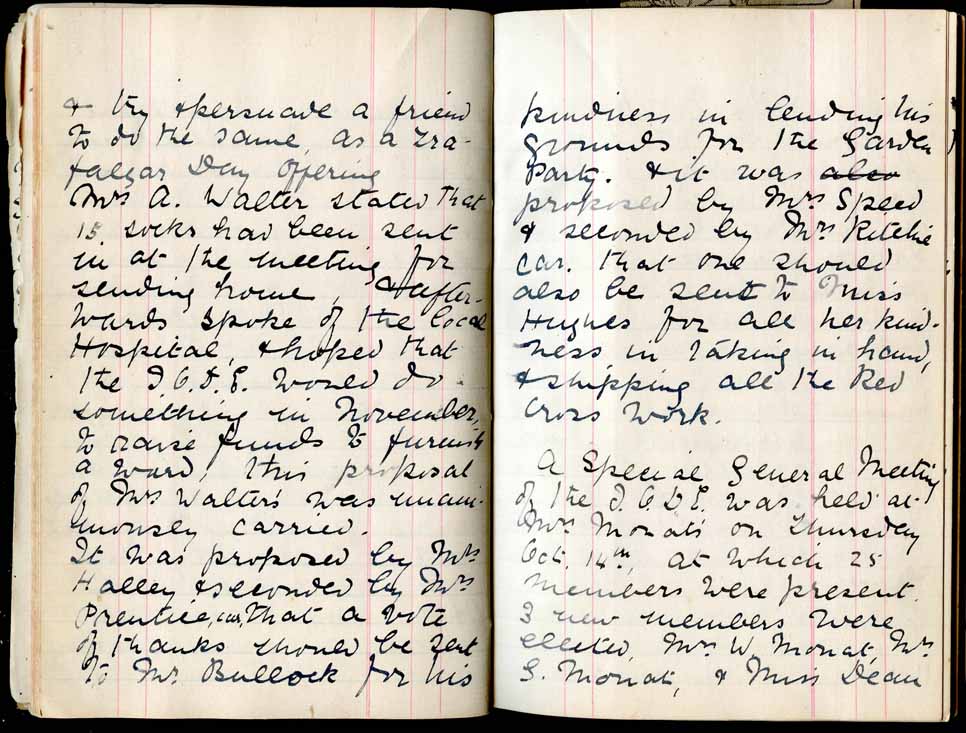 & try & persuade a friend
to do the same, as a Tra-
falgar Day offering
Mrs A. Walter stated that
15. socks had been sent
in at the meeting for
sending home, & after-
wards spoke of the local
Hospital, & hoped that
the I.O.D.E. would do
something in November,
to raise funds to furnish
a ward, this proposal
of Mrs Walter's was unani-
mously carried.
It was proposed by Mrs
Halley & seconded by Mrs
Prentice, car. that a vote
of thanks should be sent
to Mr. Bullock for his
kindness in lending his
grounds for the Garden
Party. & it was also
proposed by Mrs Speed
& seconded by Mrs Ritchie
car. that one should
also be sent to Miss
Hughes for all her kind-
ness in taking in hand,
& shipping all the Red
Cross work.
A Special General Meeting
of the I.O.D.E. was held at
Mrs Mouat's on Thursday
Oct. 14th, at which 25
members were present.
3 new members were
elected, Mrs W. Mouat, Mrs
G. Mouat, & Miss Dean